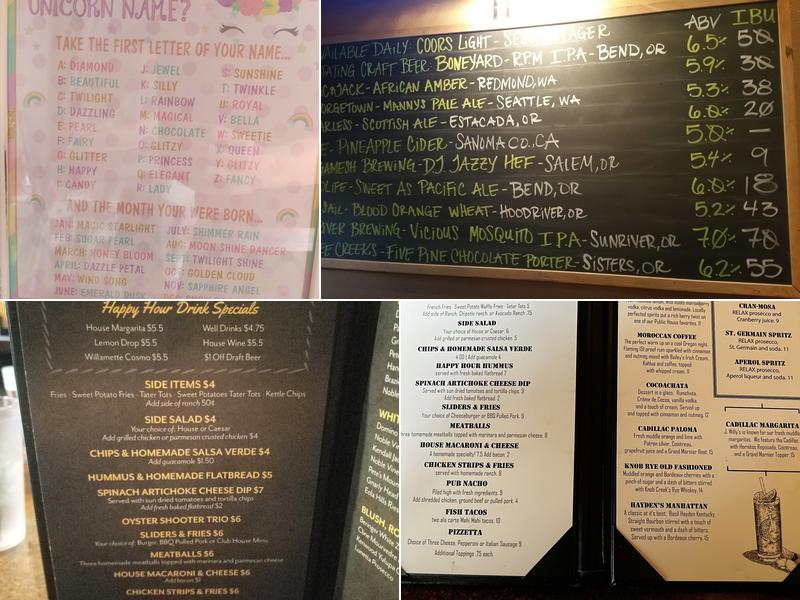 UNICORN NAME?
TAKE THE FIRST LETTER OF YOUR NAME...
A: DIAMOND
B: BEAUTIFUL
C: TWILIGHT
D: DAZZLING
E: PEARL
F: FAIRY
G: GLITTER
H: HAPPY
I: CANDY
J: JEWEL
K: SILLY
L: RAINBOW
M: MAGICAL
N: CHOCOLATE
O: GLITZY
P: PRINCESS
Q: ELEGANT
R: LADY
S: SUNSHINE
T: TWINKLE
U: ROYAL
V: BELLA
W: SWEETIE
X: QUEEN
Y: GLITZY
Z: FANCY
...AND THE MONTH YOUR WERE BORN...
JAN: MAGIC STARLIGHT
FEB: SUGAR PEARL
MARCH: HONEY BLOOM
APRIL: DAZZLE PETAL
MAY: WIND SONG
JUNE: EMERALD DUSK
JULY: SHIMMER RAIN
AUG: MOON SHINE DANCER
SEPT: TWILIGHT SHINE
OCT: GOLDEN CLOUD
NOV: SAPPHIRE ANGEL
ABV IBU
AILABLE DAILY: COORS LIGHT - LAGER 6.5% 50
TATING CRAFT BEER: BONEYARD - RPM I.P.A - BEND, OR 5.9% 30
JACK - AFRICAN AMBER - REDMOND, WA 5.3% 38
ORGETOWN - MANNYS PALE ALE - SEATTLE, WA 6.0% 20
RLESS - SCOTTISH ALE - ESTACADA, OR 5.0% —
E - PINEAPPLE CIDER - SANOMA CO. CA 5.4% 9
GAMESH BREWING - D.J. JAZZY HEF - SALEM, OR 6.0% 18
LIPE - SWEET AS PACIFIC ALE - BEND, OR 5.2% 43
SAIL - BLOOD ORANGE WHEAT - HOODRIVER, OR 7.0% 70
IVER BREWING - VICIOUS MOSQUITO I PA - SUNRIVER, OR 6.2% 55
EE CREEKS - FIVE PINE CHOCOLATE PORTER - SISTERS, OR
Happy Hour Drink Specials
House Margarita $5.5 Well Drinks $4.75
Lemon Drop $5.5 House Wine $5.5
Willamette Cosmo $5.5 $1 Off Draft Beer
SIDE ITEMS $4
Fries · Sweet Potato Fries · Tater Tots · Sweet Potatoes Tater Tots · Kettle Chips
Add side of ranch 50¢
SIDE SALAD $4
Your choice of: House or Caesar
Add grilled chicken or parmesan crusted chicken $4
CHIPS & HOMEMADE SALSA VERDE $4
Add guacamole $1.50
HUMMUS & HOMEMADE FLATBREAD $5
SPINACH ARTICHOKE CHEESE DIP $7
Served with sun dried tomatoes and tortilla chips
Add fresh baked flatbread $2
OYSTER SHOOTER TRIO $6
SLIDERS & FRIES $6
Your choice of: Burger, BBQ Pulled Pork or Club House Minis
MEATBALLS $6
Three homemade meatballs topped with marinara and parmesan cheese
HOUSE MACARONI & CHEESE $6
Add bacon $1
CHICKEN STRIPS & FRIES $6
WHIT
BLUSH, RO
French Fries · Sweet Potato Waffle Fries · Tater Tots 5
Add side of Ranch, Chipotle ranch, or Avocado Ranch .75
SIDE SALAD
Your choice of House or Caesar. 6
Add grilled or parmesan crusted chicken. 5
CHIPS & HOMEMADE SALSA VERDE
4.00 | Add guacamole 4
HAPPY HOUR HUMMUS
served with fresh baked flatbread 7
SPINACH ARTICHOKE CHEESE DIP
Served with sun dried tomatoes and tortilla chips. 9
Add fresh baked flatbread. 2
SLIDERS & FRIES
Your choice of Cheeseburger or BBQ Pulled Pork. 9
MEATBALLS
hree homemade meatballs topped with marinara and parmesan cheese. 8
HOUSE MACARONI & CHEESE
A homemade specialty! 7.5 Add bacon. 2
CHICKEN STRIPS & FRIES
served with homemade ranch. 8
PUB NACHO
Piled high with fresh ingredients. 9
Add shredded chicken, ground beef or pulled pork. 4
FISH TACOS
two ala carte Mahi Mahi tacos. 10
PIZZETTA
Choice of Three Cheese, Pepperoni or Italian Sausage 9
Additional Toppings .75 each.
vodka, citrus vodka and lemonade. Lovely
perfected spirits put a rich berry twist on
one of our Public House favorites. 11
MOROCCAN COFFEE
The perfect warm up on a cool Oregon night.
Flaming 151 proof rum sparkled with cinnamon
and nutmeg mixed with Bailey's Irish Cream,
Kahlua and coffee, topped
with whipped cream. 11
COCOACHATA
Dessert in a glass. Rumchata,
Crème de Cocoa, vanilla vodka,
and a touch of cream. Served up
and topped with cinnamon and nutmeg. 12
CADILLAC PALOMA
Fresh muddle orange and lime with
Patron silver, Cointreau,
grapefruit juice and a Grand Marnier float. 15
KNOB RYE OLD FASHIONED
Muddled orange and Bordeaux cherries with a
pinch of sugar and a dash of bitters stirred
with Knob Creek's Rye Whiskey. 14
HAYDEN'S MANHATTAN
A classic at it's best. Basil Hayden Kentucky
Straight Bourbon stirred with a touch of
sweet vermouth and a dash of bitters.
Served up with a Bordeaux cherry. 15
CRAN-MOSA
RELAX prosecco and
Cranberry juice. 9
ST. GERMAIN SPRITZ
RELAX prosecco,
St. Germain and soda. 11
APEROL SPRITZ
RELAX prosecco,
Aperol liqueur and soda. 11
CADILLAC MARGARITA
J. Willy's is known for our fresh muddle
margaritas. We feature the Cadillac
with Hornitos Reposado, Cointreau,
and a Grand Marnier Topper. 15